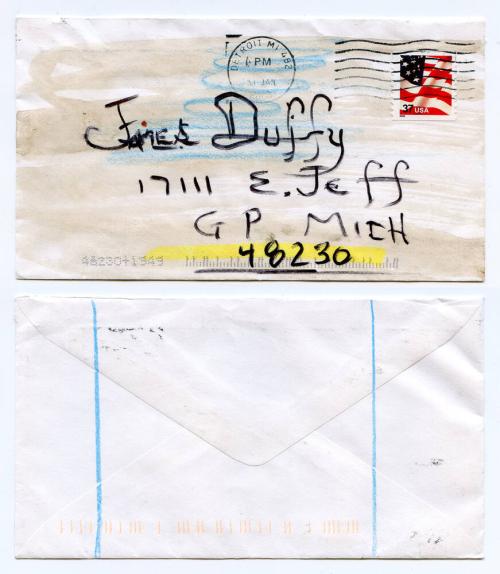 DETROIT MI 482
PM
JAN
37
USA
James Duffy
17111 E. Jeff
G P MICH
48230
48230+1949